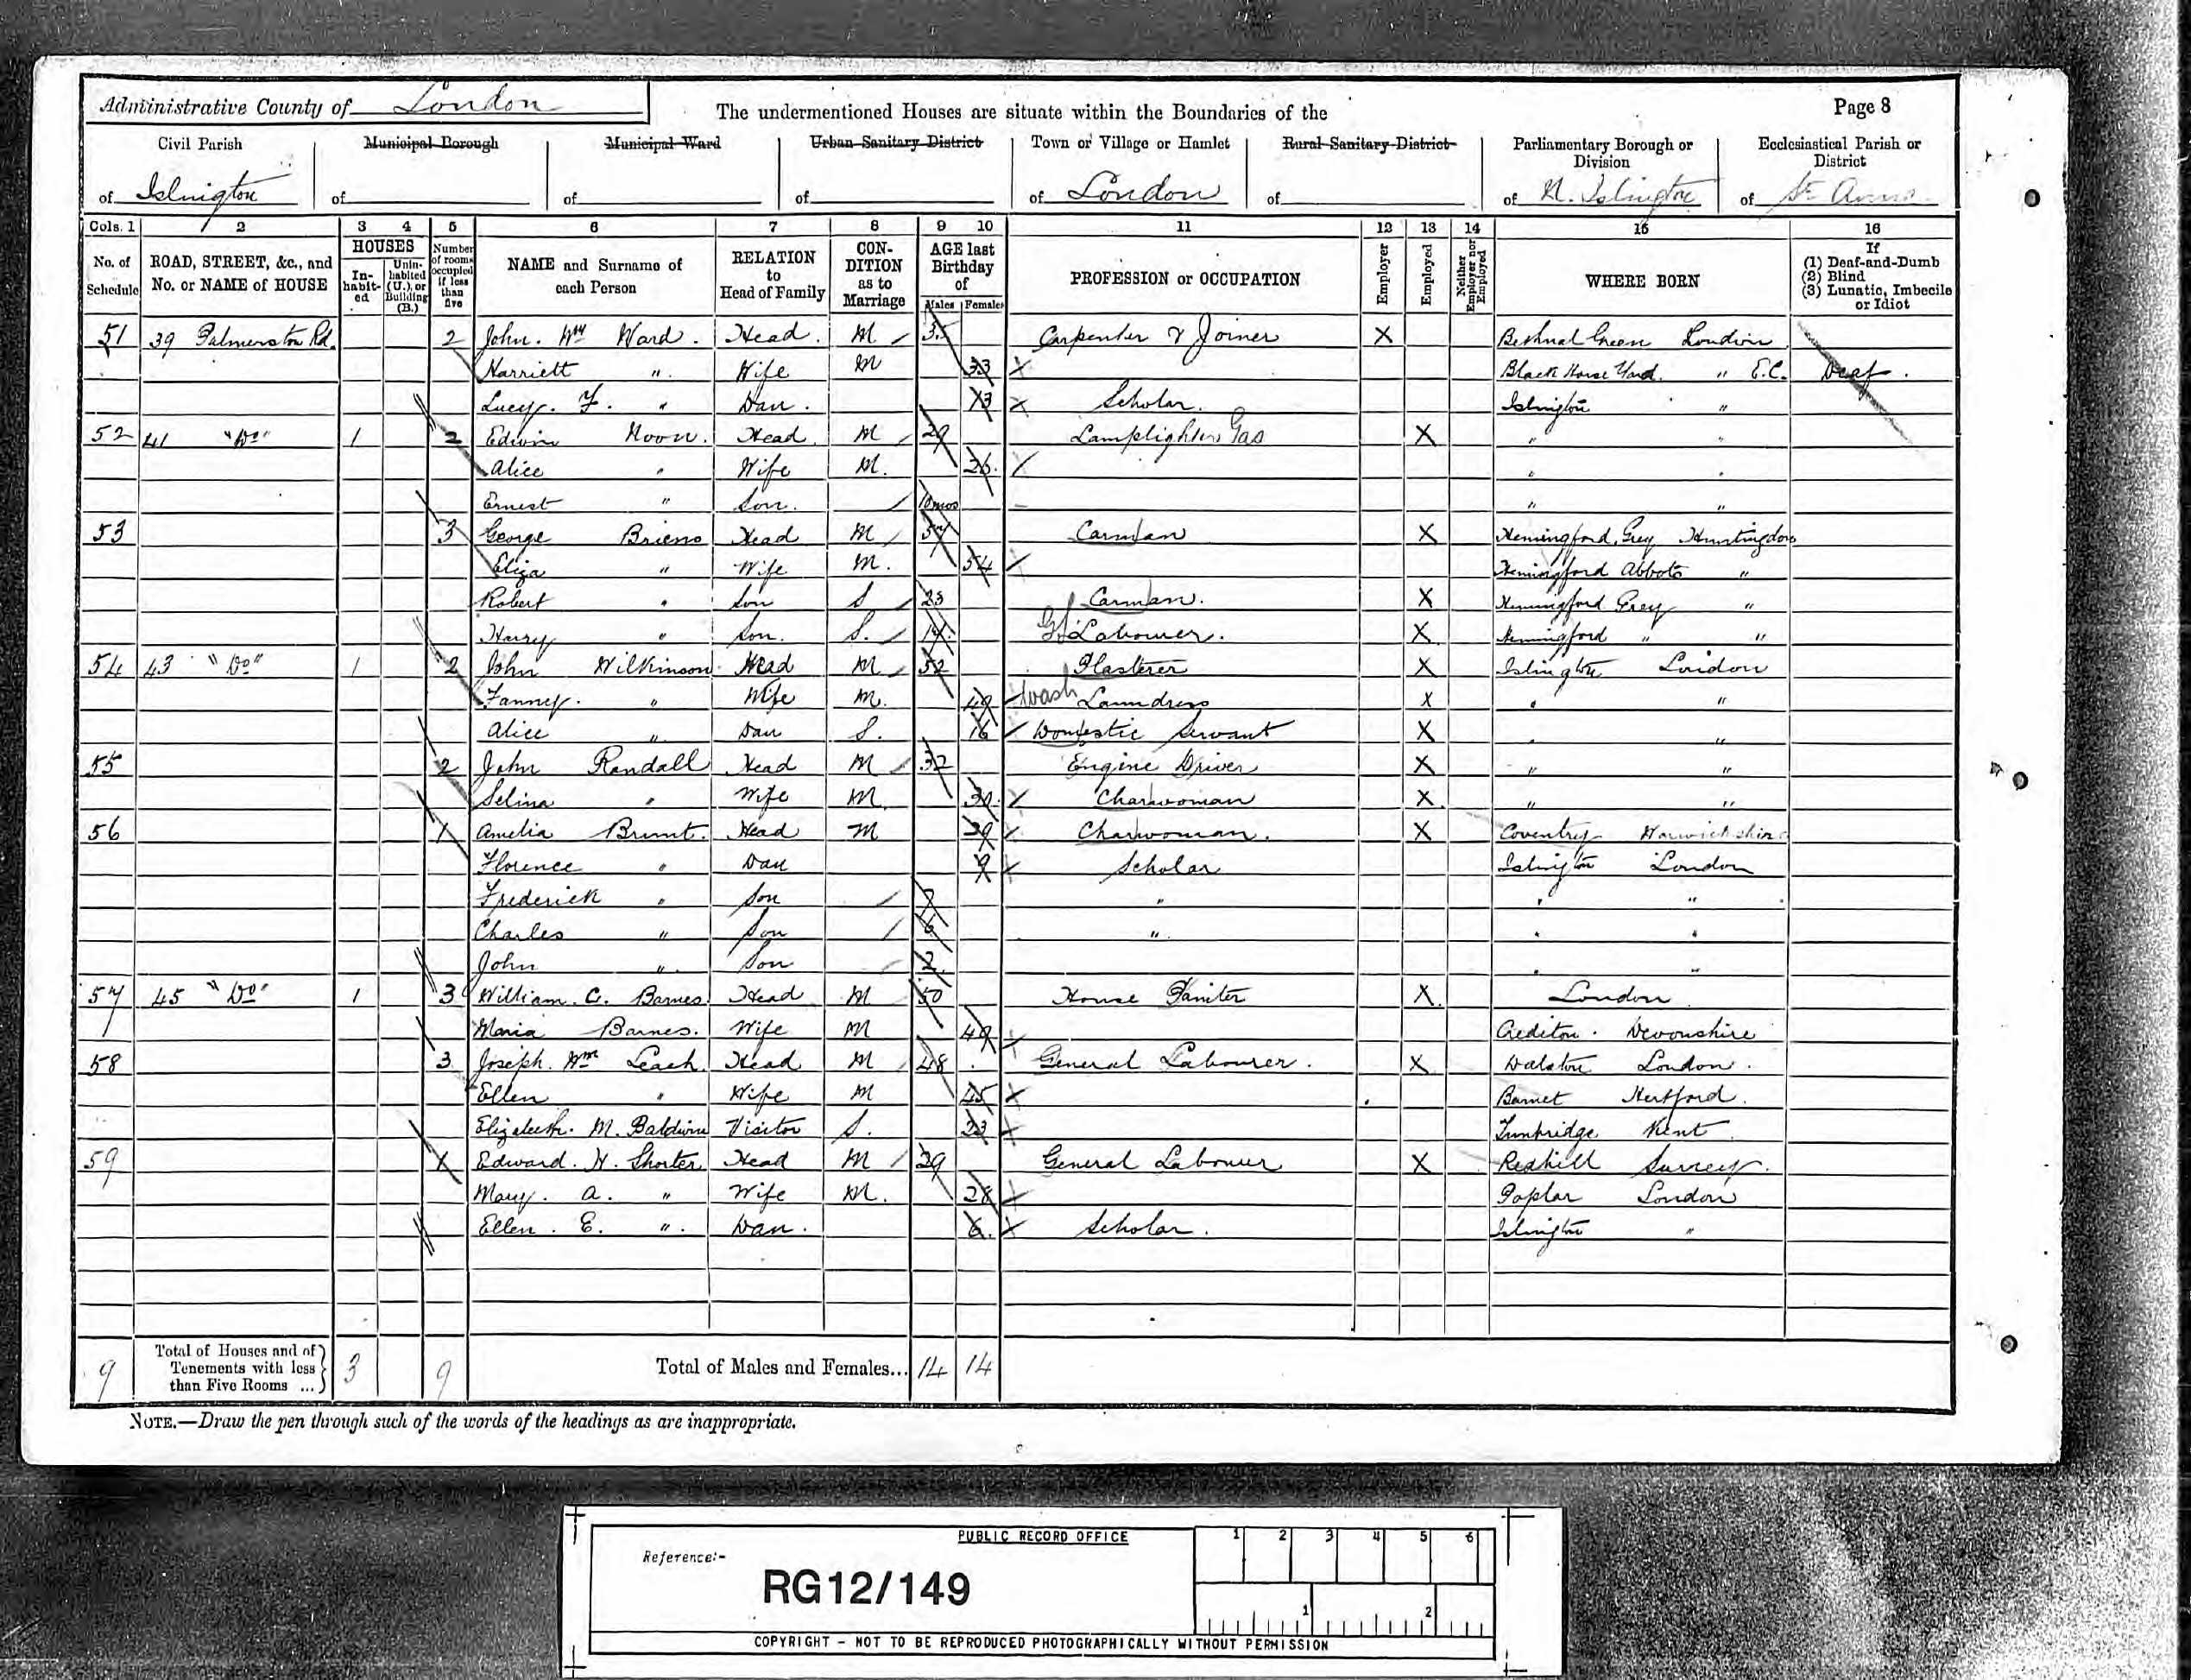 Administrative County of London
The undermentioned Houses are situate within the Boundaries of the
Page 8
Civil Parish of Islington
Municipal Borough of
Municipal Ward of
Urban Sanitary District of
Town or Village or Hamlet of London
Rural Sanitary District of
Parliamentary Borough or Division of N. Islington
Ecclesiastical Parish or District of St Anns
Cols. 1 2 3 4 5 6 7 8 9 10 11 12 13 14 15 16
No. of Schedule
ROAD, STREET, &c., and No. or NAME of HOUSE
HOUSES
Inhabited
Uninhabited (U.), or Building (B.)
Number of rooms occupied if less than five
NAME and Surname of each Person
RELATION to Head of Family
CONDITION as to Marriage
AGE last Birthday of
Males Females
PROFESSION or OCCUPATION
Employer
Employed
Neither Employer nor Employed
WHERE BORN
If (1) Deaf-and-Dumb (2) Blind (3) Lunatic, Imbecile or Idiot
51 39 Palmerston Rd. 2 John. Wm Ward. Head. M 35 Carpenter & Joiner X Bethnal Green London
Harriett " Wife M 33 Black Horse Yard. " E.C. Deaf.
Lucy. F. " Dau. 13 Scholar. Islington "
52 41 "Do" 1 2 Edwin Moon. Head. M 29 Lamplighter Gas X " "
Alice " Wife M. 26. " "
Ernest " Son. 10 mos " "
53 3 George Briens Head M 57 Carman X Hemingford Grey Huntingdon
Eliza " Wife M. 54 Hemingford Abbots "
Robert " Son S 23 Carman. X Hemingford Grey "
Harry " Son. S. 14. Gl Labourer. X Hemingford " "
54 43 "Do" 1 2 John Wilkinson Head M 52 Plasterer X Islington London
Fanney. " Wife M. 49 Wash Laundress X " "
Alice " Dau S. 16 Domestic Servant X " "
55 2 John Randall Head M 32 Engine Driver X " "
Selina " Wife M. 30. Charwoman X " "
56 1 Amelia Brunt. Head M 29 Charwoman. X Coventry Warwickshire
Florence " Dau 9 Scholar Islington London
Frederick " Son 7 " " "
Charles " Son 6 " " "
John " Son 2 " "
57 45 "Do" 1 3 William. C. Barnes. Head M 50 House Painter X London
Maria Barnes. Wife M 49 Crediton. Devonshire
58 3 Joseph. Wm Leach. Head M 48 General Labourer. X Dalston London.
Ellen " Wife M 45 Barnet Hertford.
Elizabeth. M. Baldwin Visitor S. 23 Tunbridge Kent
59 1 Edward. H. Shorter Head M 29 General Labourer X Redhill Surrey.
Mary. A. " Wife M. 28 Poplar London
Ellen. E. " Dau. 6. Scholar. Islington "
9 Total of Houses and of Tenements with less than Five Rooms ... 3 9 Total of Males and Females... 14 14
NOTE.—Draw the pen through such of the words of the headings as are inappropriate.
PUBLIC RECORD OFFICE
1 2 3 4 5 6
Reference:-
RG12/149
1 2
COPYRIGHT - NOT TO BE REPRODUCED PHOTOGRAPHICALLY WITHOUT PERMISSION